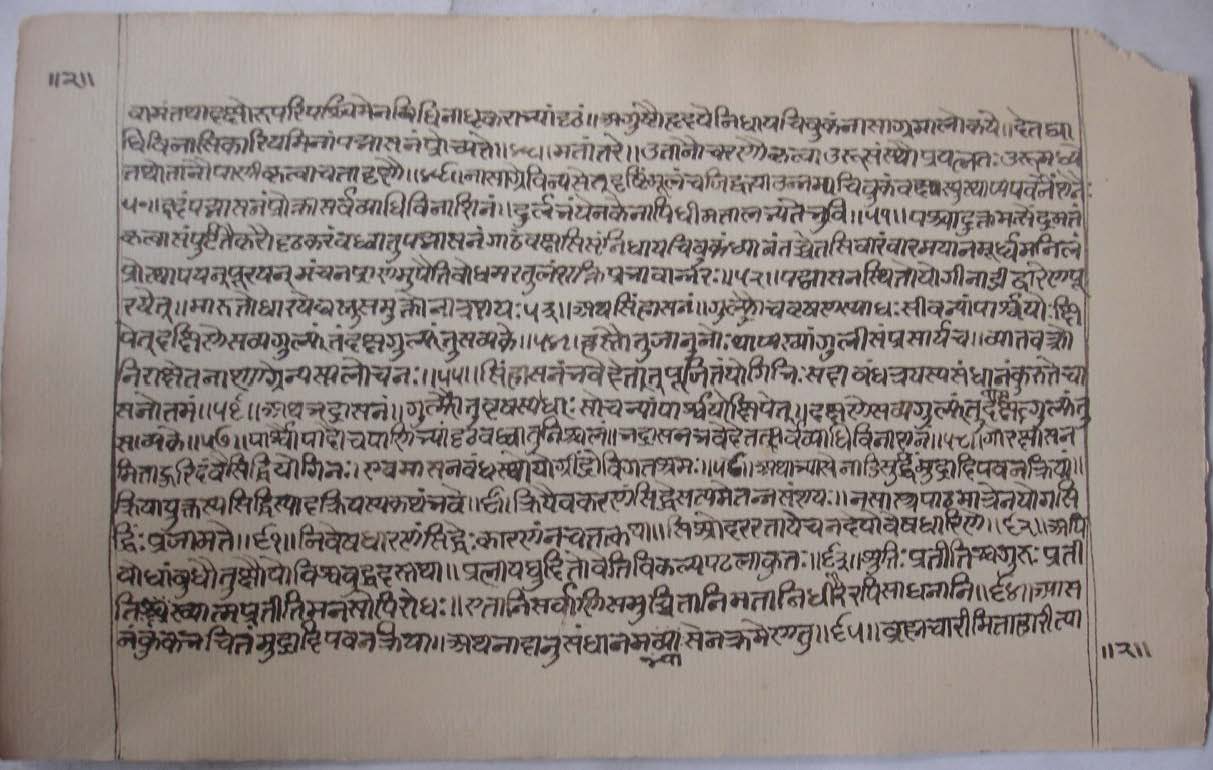 ॥२॥
वामं तथा दक्षोरूपरि पश्चिमेन विधिना धृत्वा कराभ्यां दृढं॥ अंगुष्ठौ हृदये निधाय चिबुकं नासाग्रमालोकये॥ देतद्व्या
धिविनासिकारियमिनां पद्मासनं प्रोच्यते॥४८॥ मतांतरे॥ उतानौ चरणौ कृत्वा उरूसंस्थौ प्रयत्नतः उरूमध्ये
तथोतानौ पाणी कृत्वा च तादृशौ॥४९॥ नासाग्रे विन्यसेत् दृष्टिं मूलं च जिह्वया उन्नम्य चिबुकं वक्ष स्युस्थाप्य पवनं शनैः
५०॥ इदं पद्मासनं प्रोक्तं सर्वव्याधिविनाशिनं॥ दुर्लभं येन केनापि धीमता लभ्यते भुवि॥५१॥
कृत्वा संपुटितौ करौ दृढकरं बध्वा तु पद्मासनं गाढं वक्षसि संनिधाय चिबुकं ध्यानं तच्चेतसि वारंवारमपानमूर्ध्वमनिलं
प्रोत्थापयन् पूरयन् मुंचन् प्राणमुपैति बोधमतुलं शक्ति प्रभावान्नरः॥५२॥ पद्मासनस्थितो योगी नाडीद्वारेण पू
रयेत्॥ मारुतो धारयेद्यस्तु स मुक्तो नात्र शयः५३॥ अथ सिंहासनं॥ गुल्फौ च वृषणस्याधः सीवन्यां पार्श्वयोः क्षि
पेत् दक्षिणे सव्यगुल्फं तं दक्षगुल्फं तु सव्यके॥५४॥ हस्तौ तु जानुनोः थाप्य स्वांगुली संप्रसार्य च॥ व्यातवक्त्रो
निरीक्षेत नाशाग्रे न्यस्तलोचनः॥५५॥ सिंहासनं भवेदेतत् पूजितं योगिभिः सदा बंधत्रयस्य संधानं कुरुते चा
सनोतमं॥५६॥ अथ भद्रासनं॥ गुल्फौ तु वृषस्यधाः सीवन्यां पार्श्वयो क्षिपेत्॥ दक्षिणे सव्यगुल्फं तु दक्षगुल्फं तु
सव्यके॥५७॥ पार्श्वपादौ च पाणिभ्यां दृढं बध्वा तु निश्चलं॥ भद्रासनं भवेदेतत्सर्वव्याधिविनाशनं॥५८॥ गोरक्षासन
मित्याहुरिदं वै सिद्धियोगिनः॥ एवमासनबंधस्थो योगींद्रो विगतश्रमः॥५९॥ अथाभ्यासे नाडिसुद्धिं मुद्रादिपवनक्रियां॥
क्रियायुक्तस्य सिद्धि स्यादक्रियस्य कथं भवे॥६०॥ क्रियैव करणं सिद्धे सत्यमेतन्न संशयः॥ न सास्त्रपाठमात्रेण योगसि
द्धिः प्रजायते॥६१॥ न वेषधारणं सिद्धेः कारणं न च तत्कथा॥ सिश्नोदररतायै च न देयो वेषधारिणे॥६२॥ अपि
विकल्पपटलाकुतः॥६३॥ श्रुतिः प्रतीतिश्च गुरुः प्रती
तिः स्वात्मप्रतीति मनसोपि रोधः॥ एतानि सर्वाणि समुच्चितानि मतानि धीरैरपि साधनानि॥६४॥ आस
नं कुंकंभ चित्रं मुद्रादि पवनक्रिया॥ अथ नादानुसंधानमभ्यासेन क्रमेण तु॥६५॥ ब्रह्मचारी मिताहारी त्या
॥२॥